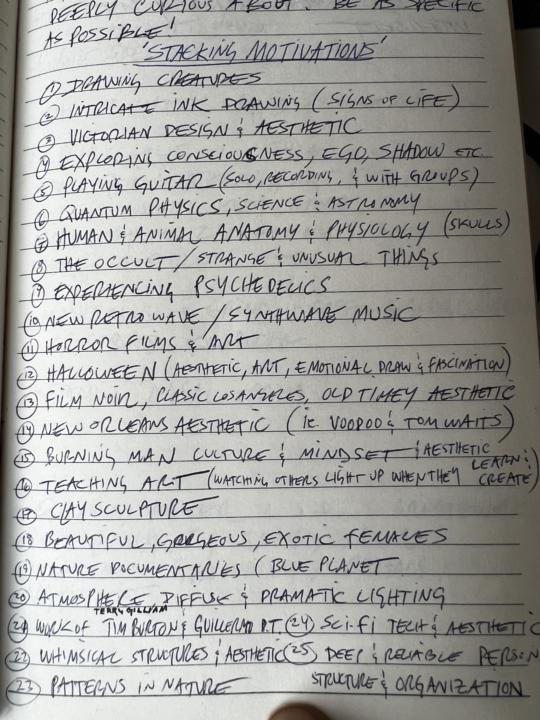 DEEPLY CURIOUS ABOUT. BE AS SPECIFIC
AS POSSIBLE!
'STACKING MOTIVATIONS'
① DRAWING CREATURES
② INTRICATE INK DRAWING (SIGNS OF LIFE)
③ VICTORIAN DESIGN & AESTHETIC
④ EXPLORING CONSCIOUSNESS, EGO, SHADOW ETC.
⑤ PLAYING GUITAR (SOLO, RECORDING, & WITH GROUPS)
⑥ QUANTUM PHYSICS, SCIENCE & ASTRONOMY
⑦ HUMAN & ANIMAL ANATOMY & PHYSIOLOGY (SKULLS)
⑧ THE OCCULT / STRANGE & UNUSUAL THINGS
⑨ EXPERIENCING PSYCHEDELICS
⑩ NEW RETRO WAVE / SYNTHWAVE MUSIC
⑪ HORROR FILMS & ART
⑫ HALLOWEEN (AESTHETIC, ART, EMOTIONAL DRAW & FASCINATION)
⑬ FILM NOIR, CLASSIC LOS ANGELES, OLD TIMEY AESTHETIC
⑭ NEW ORLEANS AESTHETIC (ie. VOODOO & TOM WAITS)
⑮ BURNING MAN CULTURE & MINDSET & AESTHETIC
⑯ TEACHING ART (WATCHING OTHERS LIGHT UP WHEN THEY LEARN & CREATE)
⑰ CLAY SCULPTURE
⑱ BEAUTIFUL, GORGEOUS, EXOTIC FEMALES
⑲ NATURE DOCUMENTARIES (BLUE PLANET
⑳ ATMOSPHERE, DIFFUSE & DRAMATIC LIGHTING
TERRY GILLIAM
㉑ WORK OF TIM BURTON & GUILLERMO D.T. ㉔ Sci-fi TECH & AESTHETIC
㉒ WHIMSICAL STRUCTURES & AESTHETIC ㉕ DEEP & RELIABLE PERSON
㉓ PATTERNS IN NATURE STRUCTURE & ORGANIZATION